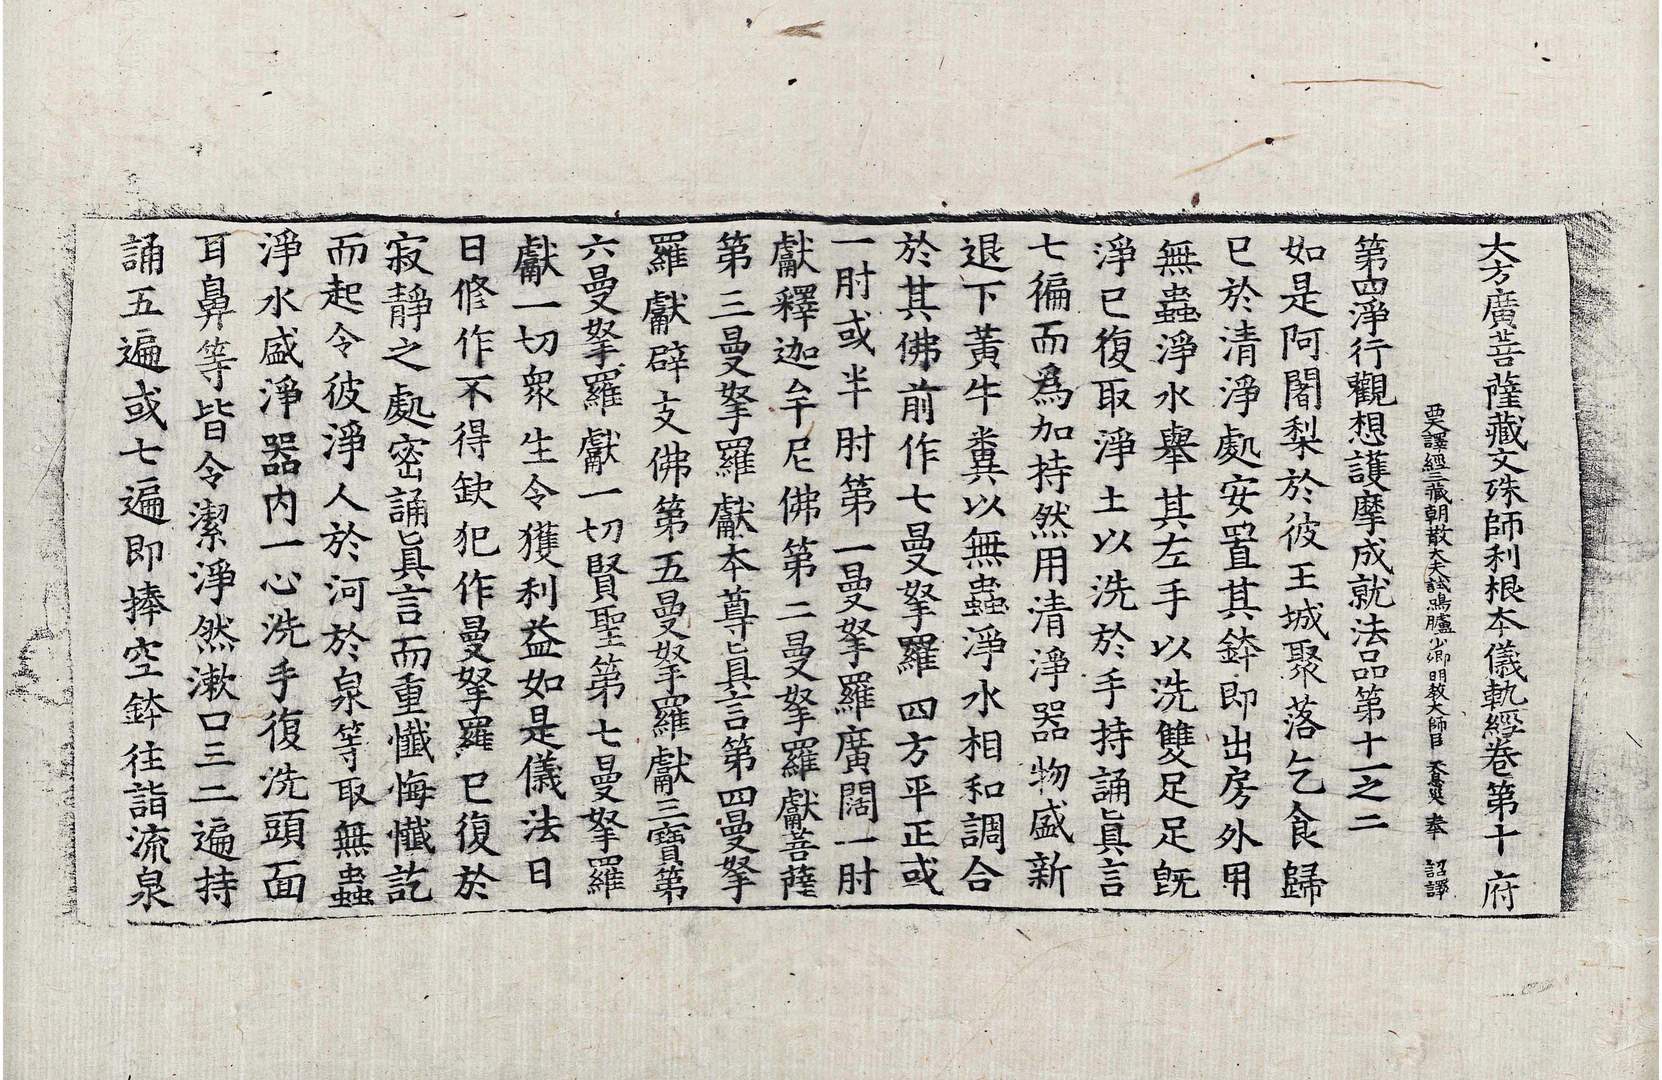 大方廣菩薩藏文殊師利根本儀軌經卷第十 府
西天譯經三藏朝散大夫試鴻臚少卿明教大師臣 天息災 奉 詔譯
第四淨行觀想護摩成就法品第十一之二
如是阿闍梨於彼王城聚落乞食歸
已於清淨處安置其鉢即出房外用
無蟲淨水舉其左手以洗雙足足旣
淨已復取淨土以洗於手持誦眞言
七徧而爲加持然用清淨器物盛新
退下黃牛糞以無蟲淨水相和調合
於其佛前作七曼拏羅四方平正或
一肘或半肘第一曼拏羅廣闊一肘
獻釋迦牟尼佛第二曼拏羅獻菩薩
第三曼拏羅獻本尊眞言第四曼拏
羅獻辟支佛第五曼拏羅獻三寶第
六曼拏羅獻一切賢聖第七曼拏羅
獻一切衆生令獲利益如是儀法日
日修作不得缺犯作曼拏羅已復於
寂靜之處密誦眞言而重懺悔懺訖
而起令彼淨人於河於泉等取無蟲
淨水盛淨器内一心洗手復洗頭面
耳鼻等皆令潔淨然漱口三二遍持
誦五遍或七遍即捧空鉢往詣流泉